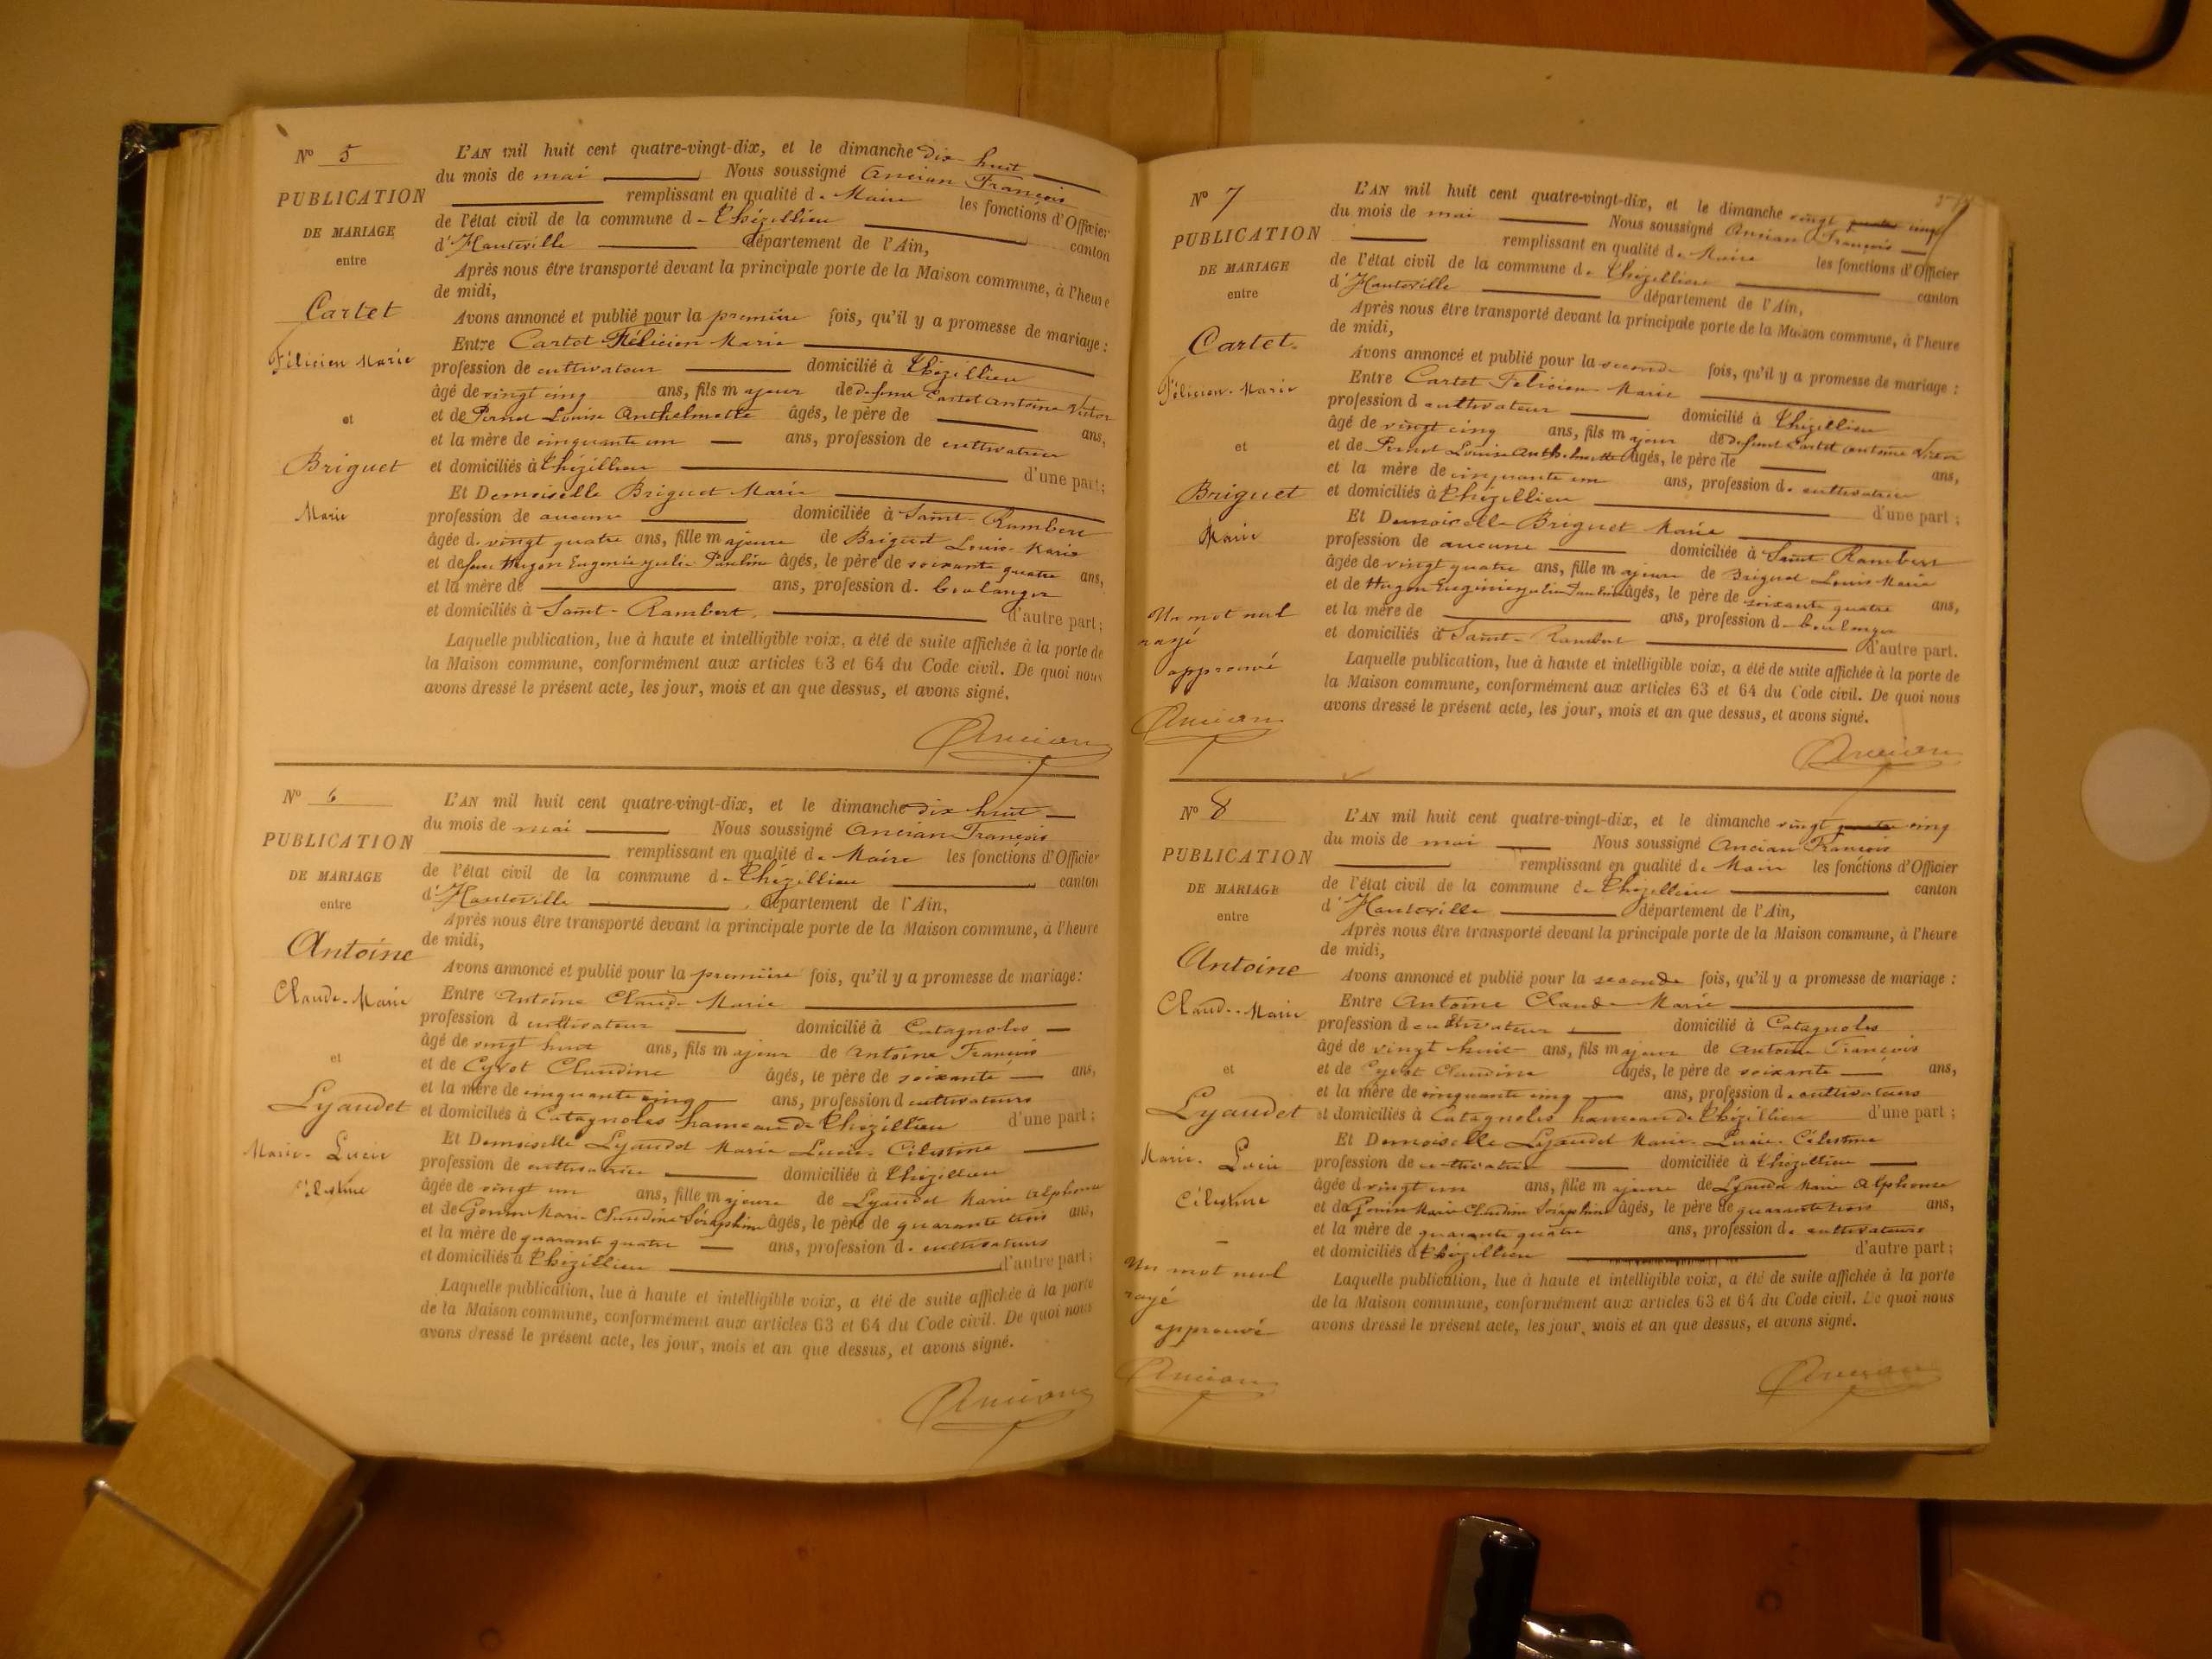 N° 5
PUBLICATION
DE MARIAGE
entre
Cartet
Félicien Marie
et
Briguet
Marie
L'AN mil huit cent quatre-vingt-dix, et le dimanche dix huit
du mois de mai Nous soussigné Ancian François
remplissant en qualité de Maire les fonctions d'Officier
de l'état civil de la commune de Thézillieu canton
d'Hauteville département de l'Ain,
Après nous être transporté devant la principale porte de la Maison commune, à l'heure
de midi,
Avons annoncé et publié pour la première fois, qu'il y a promesse de mariage :
Entre Cartet Félicien Marie
profession de cultivateur domicilié à Thézillieu
âgé de vingt cinq ans, fils majeur de défunt Cartet Antoine Victor
et de Pernet Louise Anthelmette âgés, le père de ans,
et la mère de cinquante un ans, profession de cultivatrice
et domiciliés à Thézillieu d'une part;
Et Demoiselle Briguet Marie
profession de aucune domiciliée à Saint-Rambert
âgée de vingt quatre ans, fille majeure de Briguet Louis-Marie
et de feue Hugon Eugénie Julie Pauline âgés, le père de soixante quatre ans,
et la mère de ans, profession de boulanger
et domiciliés à Saint-Rambert, d'autre part;
Laquelle publication, lue à haute et intelligible voix, a été de suite affichée à la porte de
la Maison commune, conformément aux articles 63 et 64 du Code civil. De quoi nous
avons dressé le présent acte, les jour, mois et an que dessus, et avons signé.
Ancian
N° 6
PUBLICATION
DE MARIAGE
entre
Antoine
Claude-Marie
et
Lyaudet
Marie-Lucie
Célestine
L'AN mil huit cent quatre-vingt-dix, et le dimanche dix huit
du mois de mai Nous soussigné Ancian François
remplissant en qualité de Maire les fonctions d'Officier
de l'état civil de la commune de Thézillieu canton
d'Hauteville département de l'Ain,
Après nous être transporté devant la principale porte de la Maison commune, à l'heure
de midi,
Avons annoncé et publié pour la première fois, qu'il y a promesse de mariage:
Entre Antoine Claude Marie
profession d cultivateur domicilié à Catagnoles
âgé de vingt huit ans, fils majeur de Antoine François
et de Cyvot Claudine âgés, le père de soixante ans,
et la mère de cinquante cinq ans, profession d cultivateurs
et domiciliés à Catagnoles hameau de Thézillieu d'une part;
Et Demoiselle Lyaudet Marie Lucie Célestine
profession de cultivatrice domiciliée à Thézillieu
âgée de vingt un ans, fille majeure de Lyaudet Marie Alphonse
et de Gonin Marie Claudine Séraphine âgés, le père de quarante trois ans,
et la mère de quarante quatre ans, profession de cultivateurs
et domiciliés à Thézillieu d'autre part;
Laquelle publication, lue à haute et intelligible voix, a été de suite affichée à la porte
de la Maison commune, conformément aux articles 63 et 64 du Code civil. De quoi nous
avons dressé le présent acte, les jour, mois et an que dessus, et avons signé.
Ancian
N° 7
PUBLICATION
DE MARIAGE
entre
Cartet
Félicien-Marie
et
Briguet
Marie
Un mot nul
rayé
approuvé
Ancian
L'AN mil huit cent quatre-vingt-dix, et le dimanche vingt quatre cinq
du mois de mai Nous soussigné Ancian François
remplissant en qualité de Maire les fonctions d'Officier
de l'état civil de la commune de Thézillieu canton
d'Hauteville département de l'Ain,
Après nous être transporté devant la principale porte de la Maison commune, à l'heure
de midi,
Avons annoncé et publié pour la seconde fois, qu'il y a promesse de mariage :
Entre Cartet Félicien Marie
profession d cultivateur domicilié à Thézillieu
âgé de vingt cinq ans, fils majeur de défunt Cartet Antoine Victor
et de Pernet Louise Anthelmette âgés, le père de ans,
et la mère de cinquante un ans, profession de cultivatrice
et domiciliés à Thézillieu d'une part;
Et Demoiselle Briguet Marie
profession de aucune domiciliée à Saint Rambert
âgée de vingt quatre ans, fille majeure de Briguet Louis Marie
et de Hugon Eugénie Julie Pauline âgés, le père de soixante quatre ans,
et la mère de ans, profession de boulanger
et domiciliés à Saint-Rambert d'autre part.
Laquelle publication, lue à haute et intelligible voix, a été de suite affichée à la porte de
la Maison commune, conformément aux articles 63 et 64 du Code civil. De quoi nous
avons dressé le présent acte, les jour, mois et an que dessus, et avons signé.
Ancian
N° 8
PUBLICATION
DE MARIAGE
entre
Antoine
Claude-Marie
et
Lyaudet
Marie-Lucie
Célestine
Un mot nul
rayé
approuvé
Ancian
L'AN mil huit cent quatre-vingt-dix, et le dimanche vingt quatre cinq
du mois de mai Nous soussigné Ancian François
remplissant en qualité de Maire les fonctions d'Officier
de l'état civil de la commune de Thézillieu canton
d'Hauteville département de l'Ain,
Après nous être transporté devant la principale porte de la Maison commune, à l'heure
de midi,
Avons annoncé et publié pour la seconde fois, qu'il y a promesse de mariage :
Entre Antoine Claude Marie
profession de cultivateur domicilié à Catagnoles
âgé de vingt huit ans, fils majeur de Antoine François
et de Cyvot Claudine âgés, le père de soixante ans,
et la mère de cinquante cinq ans, profession de cultivateurs
et domiciliés à Catagnoles hameau de Thézillieu d'une part;
Et Demoiselle Lyaudet Marie-Lucie-Célestine
profession de cultivatrice domiciliée à Thézillieu
âgée d vingt un ans, fille majeure de Lyaudet Marie Alphonse
et de Gonin Marie Claudine Séraphine âgés, le père de quarante trois ans,
et la mère de quarante quatre ans, profession de cultivateurs
et domiciliés à Thézillieu d'autre part;
Laquelle publication, lue à haute et intelligible voix, a été de suite affichée à la porte
de la Maison commune, conformément aux articles 63 et 64 du Code civil. De quoi nous
avons dressé le présent acte, les jour, mois et an que dessus, et avons signé.
Ancian